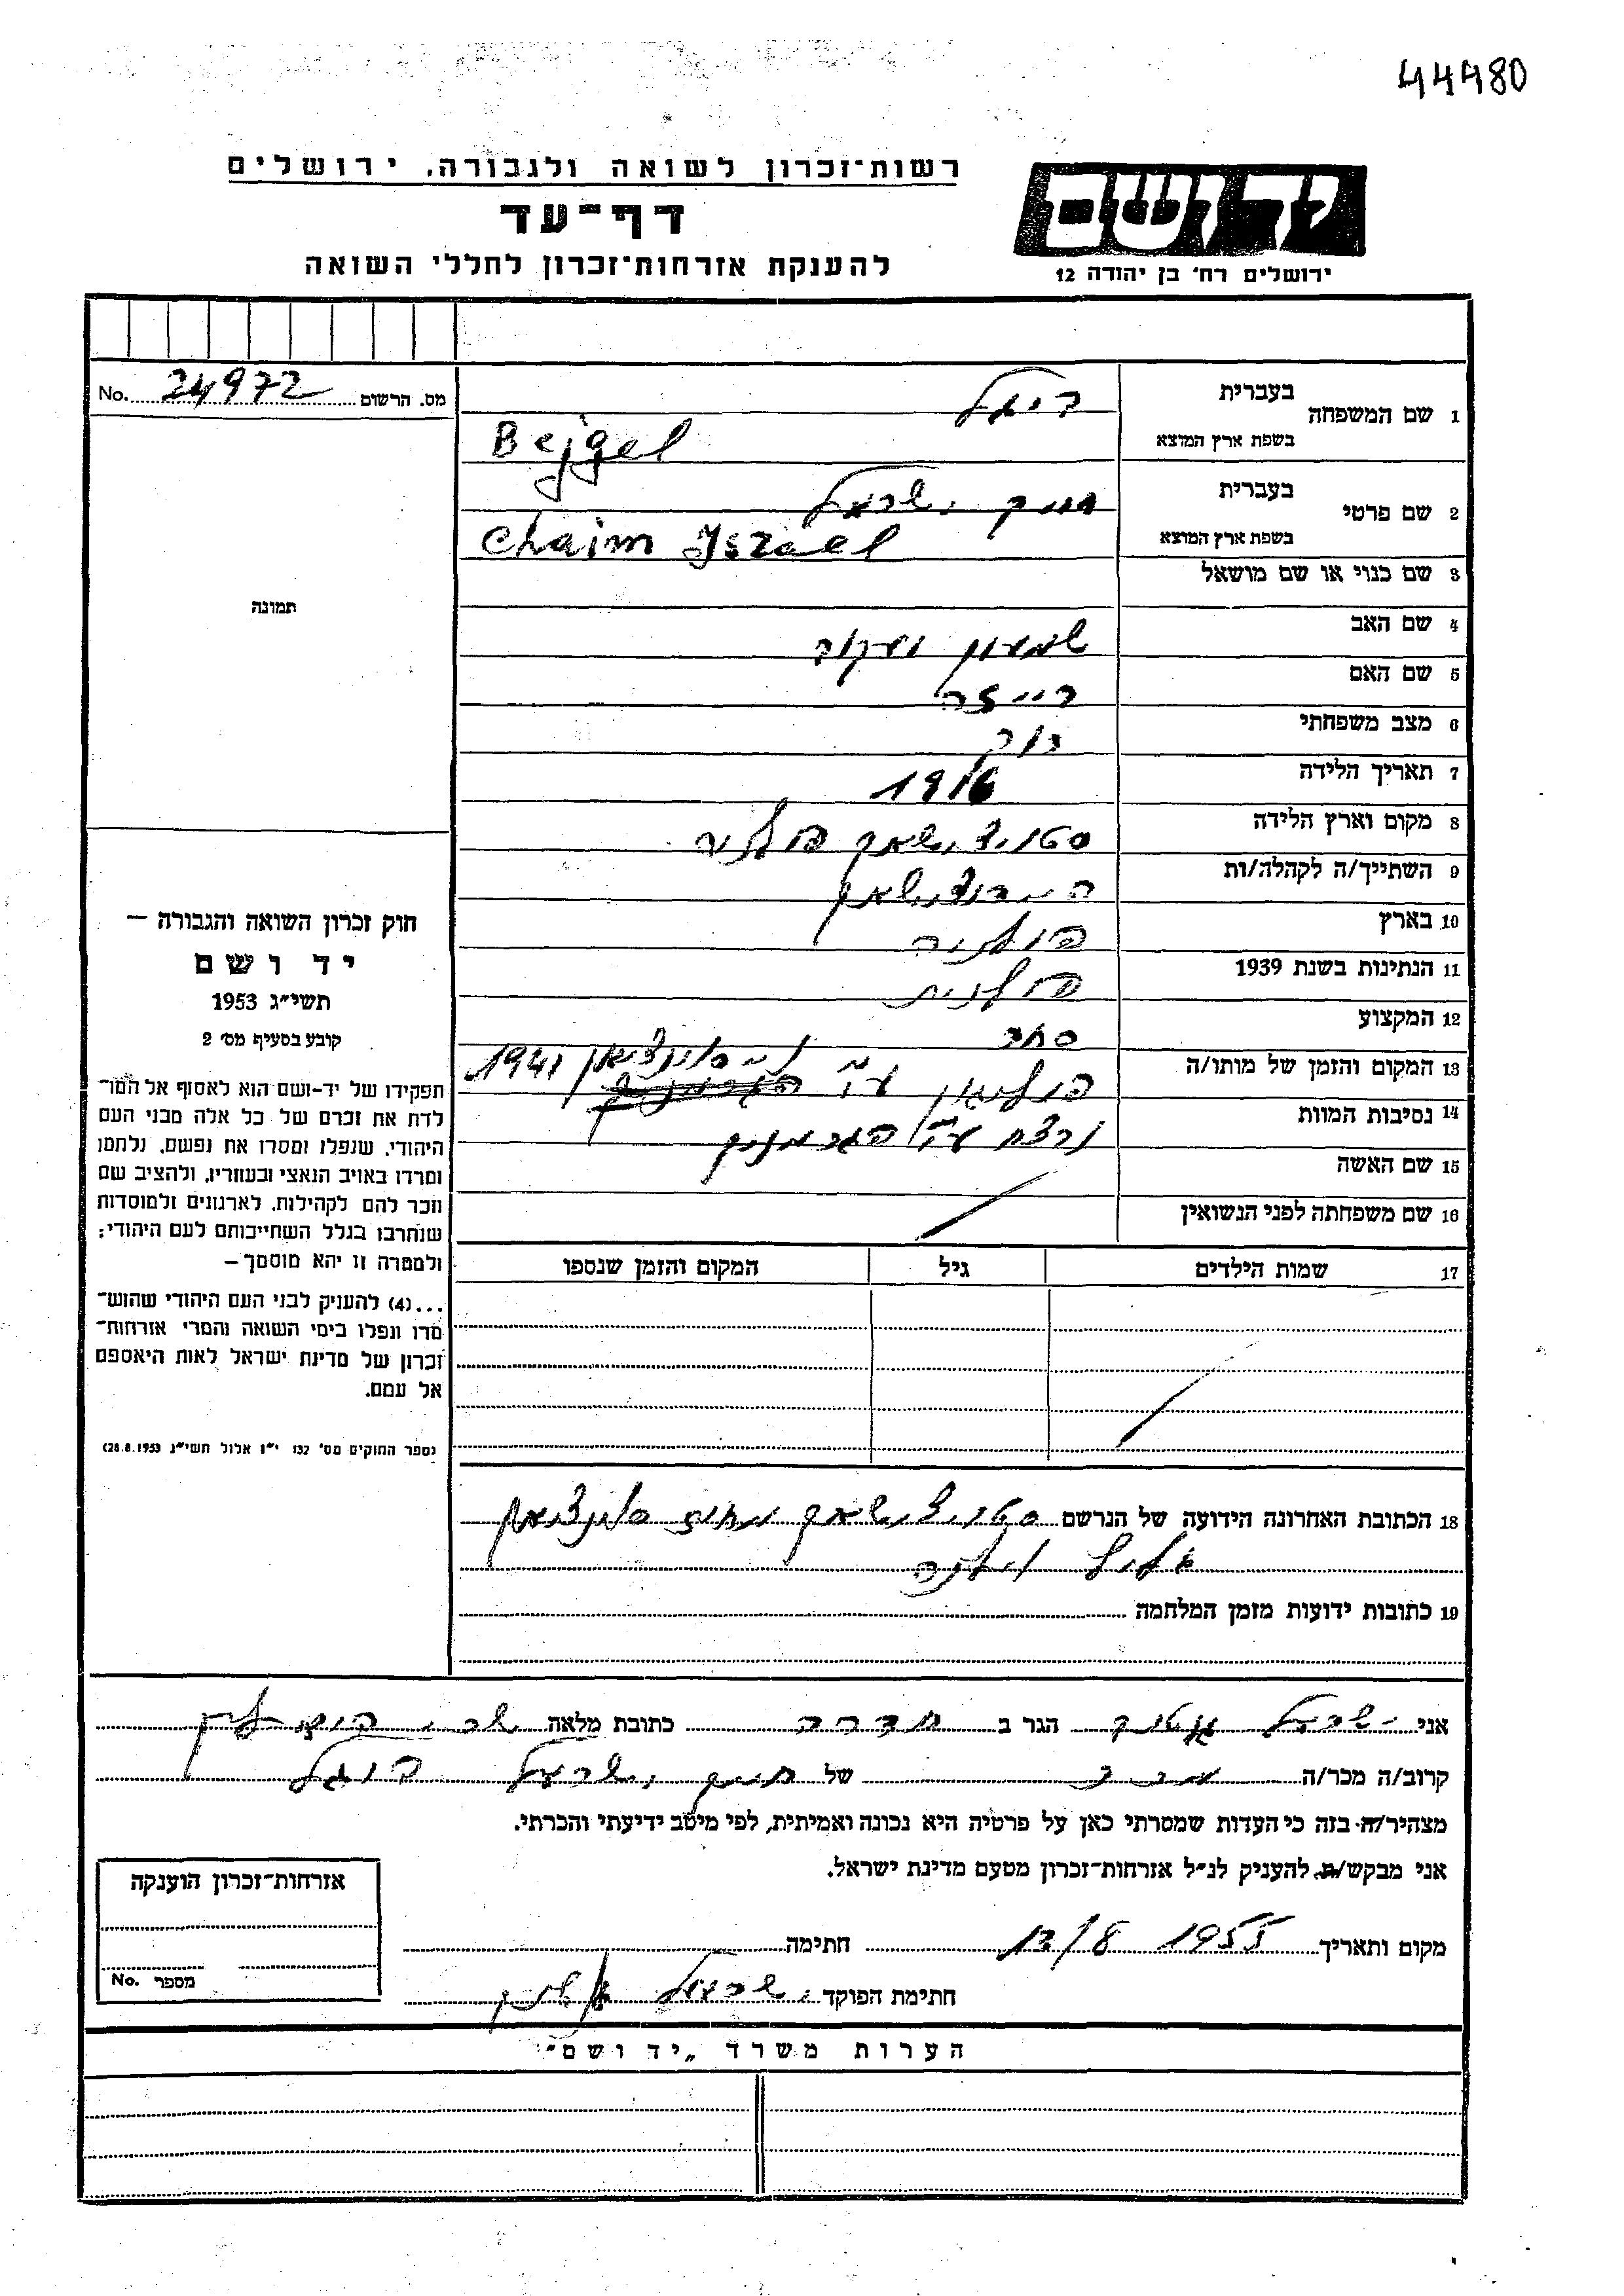 44480
רשות־זכרון לשואה ולגבורה, ירושלים
דף־עד
להענקת אזרחות־זכרון לחללי השואה
יד ושם
ירושלים רח' בן יהודה 12
מס. הרשום 24972 No.
תמונה
חוק זכרון השואה והגבורה —
יד ושם
תשי״ג 1953
קובע בסעיף מס' 2
תפקידו של יד-ושם הוא לאסוף אל המו־
לדת את זכרם של כל אלה מבני העם
היהודי, שנפלו ומסרו את נפשם, נלחמו
ומרדו באויב הנאצי ובעוזריו, ולהציב שם
וזכר להם לקהילות, לארגונים ולמוסדות
שנחרבו בגלל השתייכותם לעם היהודי;
ולמטרה זו יהא מוסמך —
...(4) להעניק לבני העם היהודי שהוש־
מדו ונפלו בימי השואה והמרי אזרחות־
זכרון של מדינת ישראל לאות היאספם
אל עמם.
(ספר החוקים מס' 132 י״ז אלול תשי״ג 28.8.1953)
1 שם המשפחה בעברית ביגל
בשפת ארץ המוצא Bejgel
2 שם פרטי בעברית חיים ישראל
בשפת ארץ המוצא Chaim Iszael
3 שם כנוי או שם מושאל
4 שם האב שמעון יעקב
5 שם האם רייזה
6 מצב משפחתי רוק
7 תאריך הלידה 1916
8 מקום וארץ הלידה פולניה
9 השתייך/ה לקהלה/ות
10 בארץ פולניה
11 הנתינות בשנת 1939 פולנית
12 המקצוע סחר
13 המקום והזמן של מותו/ה פוליגון ע״י 1941
14 נסיבות המוות נרצח ע״י הגרמנים
15 שם האשה
16 שם משפחתה לפני הנשואין
17 שמות הילדים גיל המקום והזמן שנספו
18 הכתובת האחרונה הידועה של הנרשם מחוז
וילנה
19 כתובות ידועות מזמן המלחמה
אני ישראל הגר ב חדרה כתובת מלאה
קרוב/ה מכר/ה מכר של חיים ישראל ביגל
מצהיר/ה בזה כי העדות שמסרתי כאן על פרטיה היא נכונה ואמיתית, לפי מיטב ידיעתי והכרתי.
אני מבקש/ת להעניק לנ״ל אזרחות־זכרון מטעם מדינת ישראל.
מקום ותאריך 12/8 1955 חתימה
חתימת הפוקד ישראל
אזרחות־זכרון הוענקה
מספר No.
הערות משרד „יד ושם״